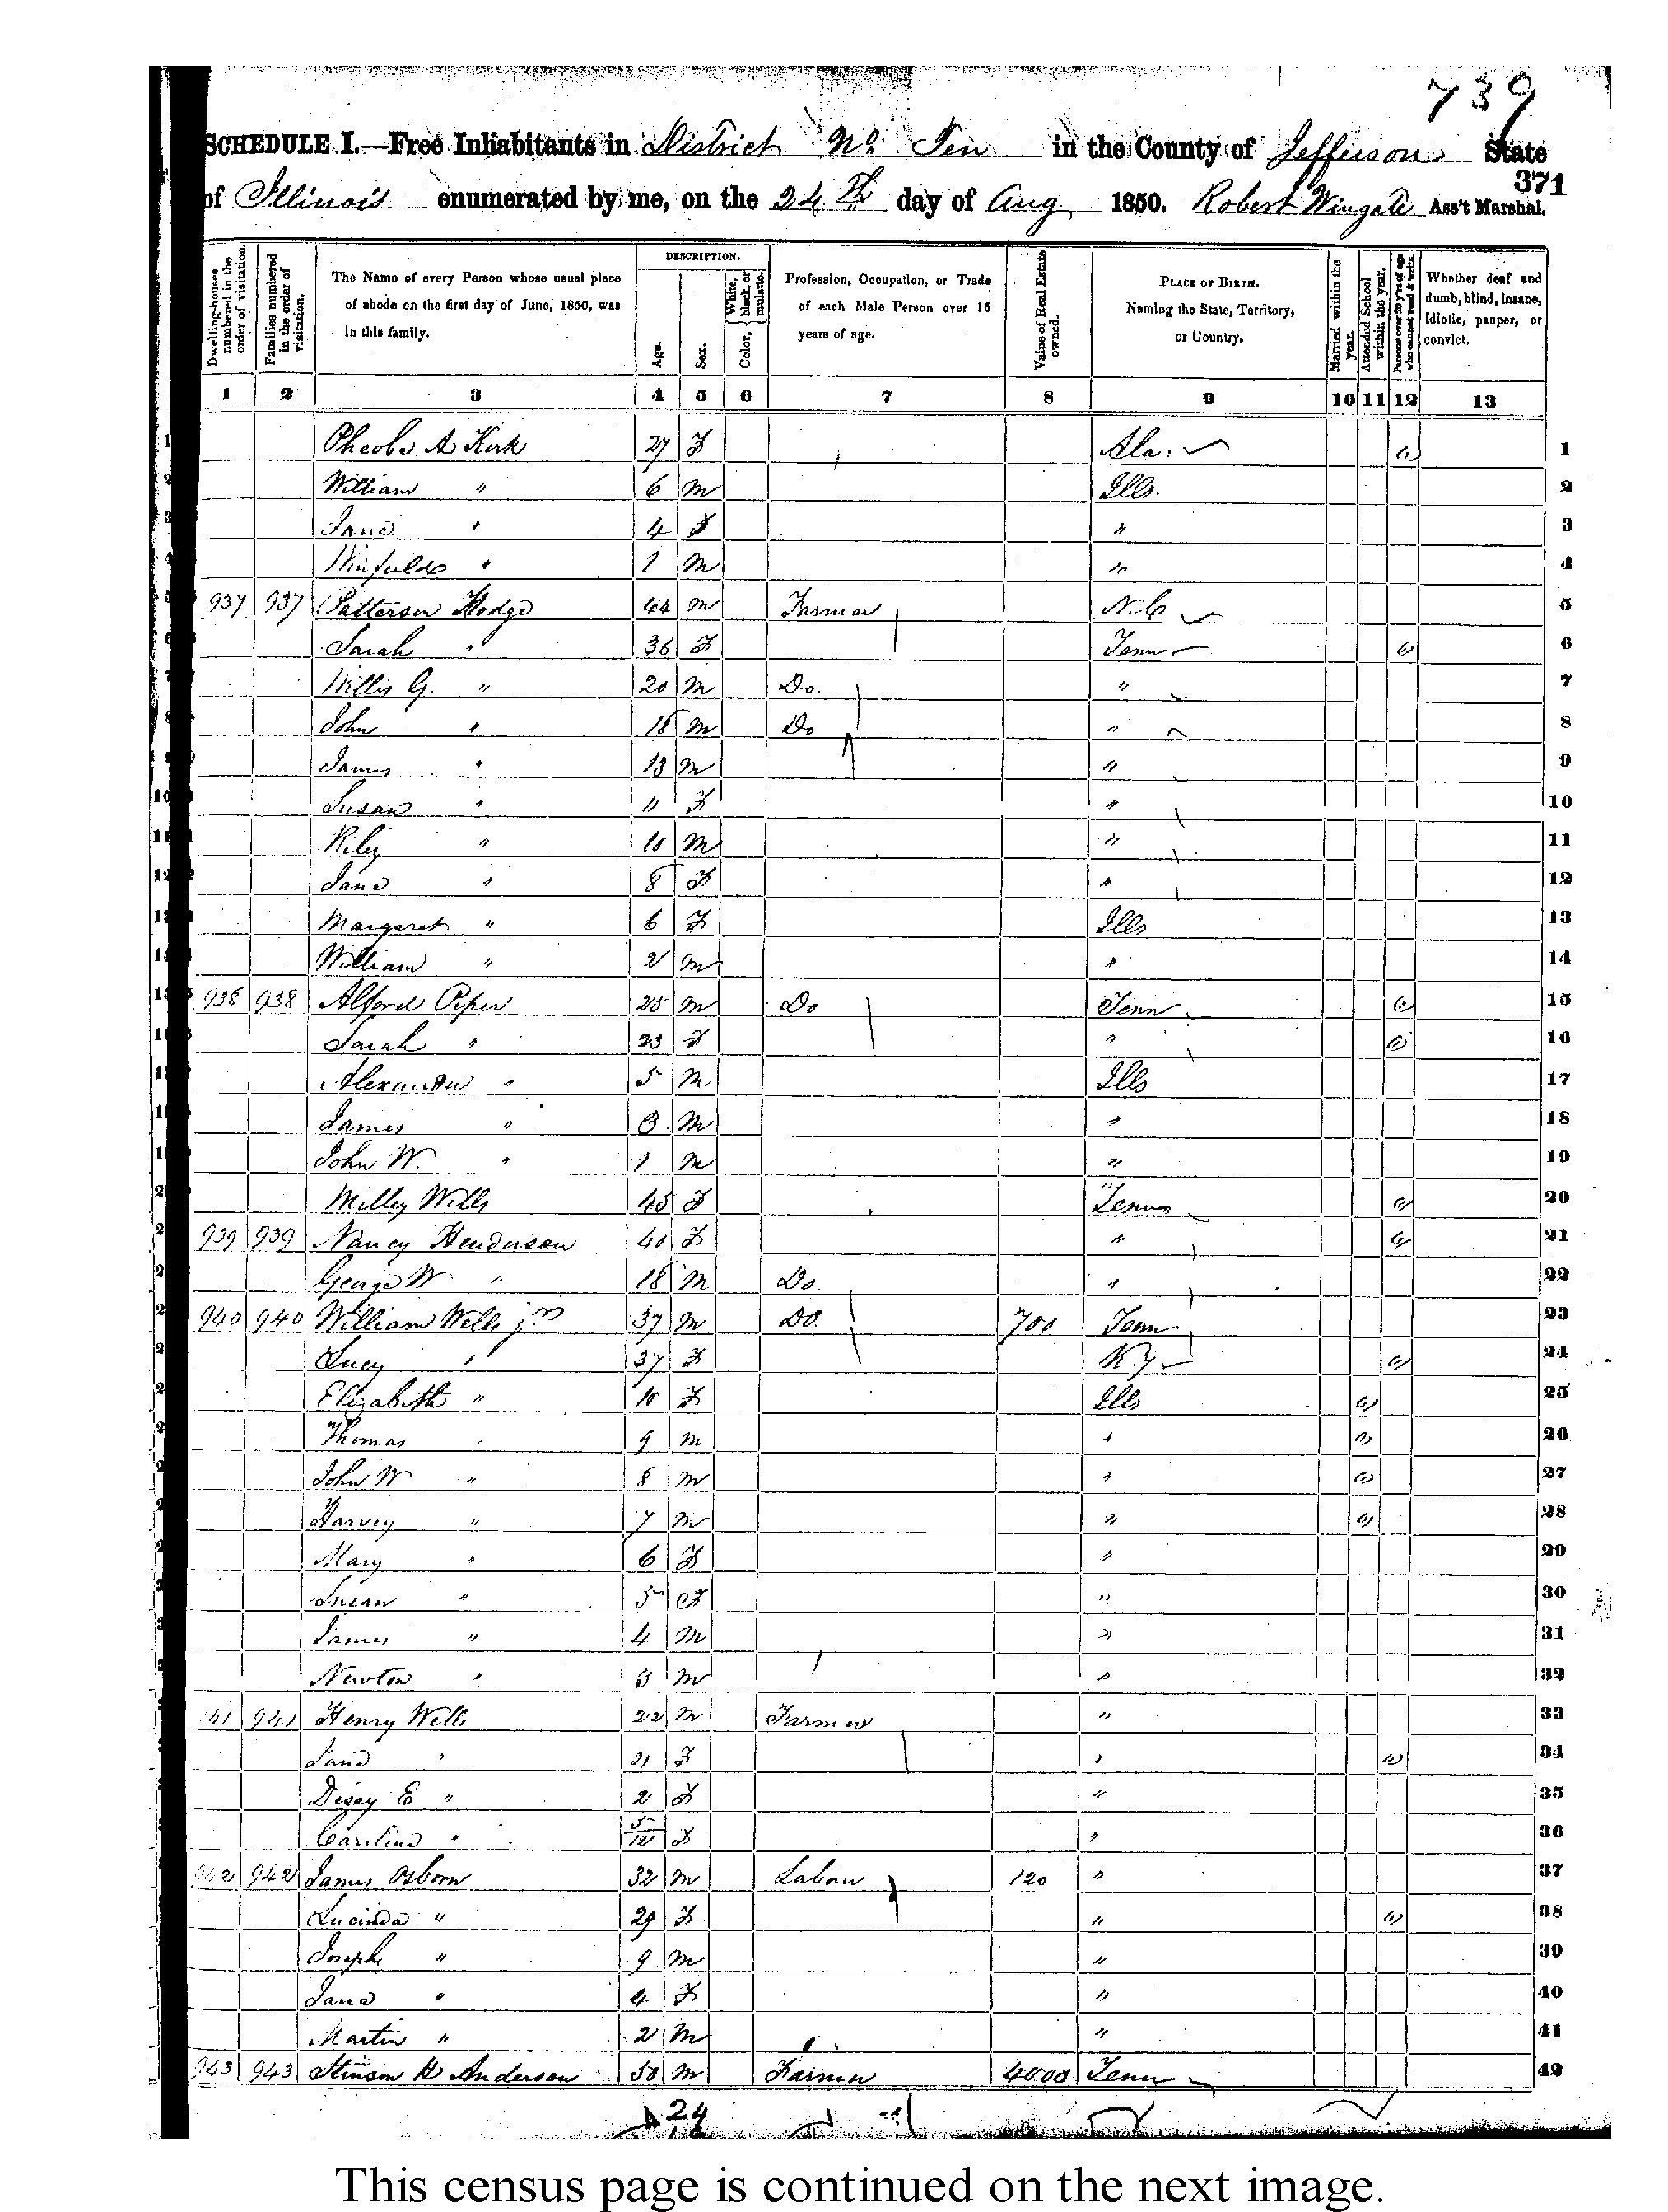 739
SCHEDULE I.—Free Inhabitants in District No. Ten in the County of Jefferson State
371
of Illinois enumerated by me, on the 24th day of Aug 1850. Robert Wingate Ass't Marshal.
Dwelling-houses numbered in the order of visitation.
Families numbered in the order of visitation.
The Name of every Person whose usual place of abode on the first day of June, 1850, was in this family.
DESCRIPTION.
Age.
Sex.
Color, White, black, or mulatto.
Profession, Occupation, or Trade of each Male Person over 15 years of age.
Value of Real Estate owned.
PLACE OF BIRTH. Naming the State, Territory, or Country.
Married within the year.
Attended School within the year.
Persons over 20 y'rs of age who cannot read & write.
Whether deaf and dumb, blind, insane, idiotic, pauper, or convict.
1 2 3 4 5 6 7 8 9 10 11 12 13
1 Pheobe A Kirk 27 F Ala. 1
2 William " 6 m Ills. 2
3 Jane " 4 F " 3
4 Winfield " 1 m " 4
5 937 937 Patterson Hodge 44 m Farmer N.C 5
6 Sarah " 36 F Tenn 6
Willis G. " 20 m Do. " 7
John " 15 m Do " 8
James " 13 m " 9
10 Susan " 11 F " 10
11 Riley " 10 m " 11
12 Jane " 8 F " 12
13 Margaret " 6 F Ills 13
14 William " 2 m " 14
938 938 Alford Piper 25 m Do Tenn 15
Sarah " 23 F " 16
Alexander " 5 m Ills 17
James " 3 m " 18
John W. " 1 m " 19
Milley Wells 45 F Tenn 20
939 939 Nancy Henderson 40 F " 21
George W " 18 m Do. " 22
940 940 William Wells jr 37 m Do. 700 Tenn 23
Lucy " 37 F K.y 24
Elizabeth " 10 F Ills 25
Thomas " 9 m " 26
John W " 8 m " 27
Harvey " 7 m " 28
Mary " 6 F " 29
Susan " 5 F " 30
James " 4 m " 31
Newton " 3 m " 32
941 941 Henry Wells 22 m Farmer " 33
Jane " 21 F " 34
Dicey E " 2 F " 35
Caroline " 5/12 F " 36
942 942 James Osborn 32 m Labour 120 " 37
Lucinda " 29 F " 38
Joseph " 9 m " 39
Jane " 4 F " 40
Martin " 2 m " 41
943 943 Stinson H Anderson 50 m Farmer 4000 Tenn 42
24
This census page is continued on the next image.